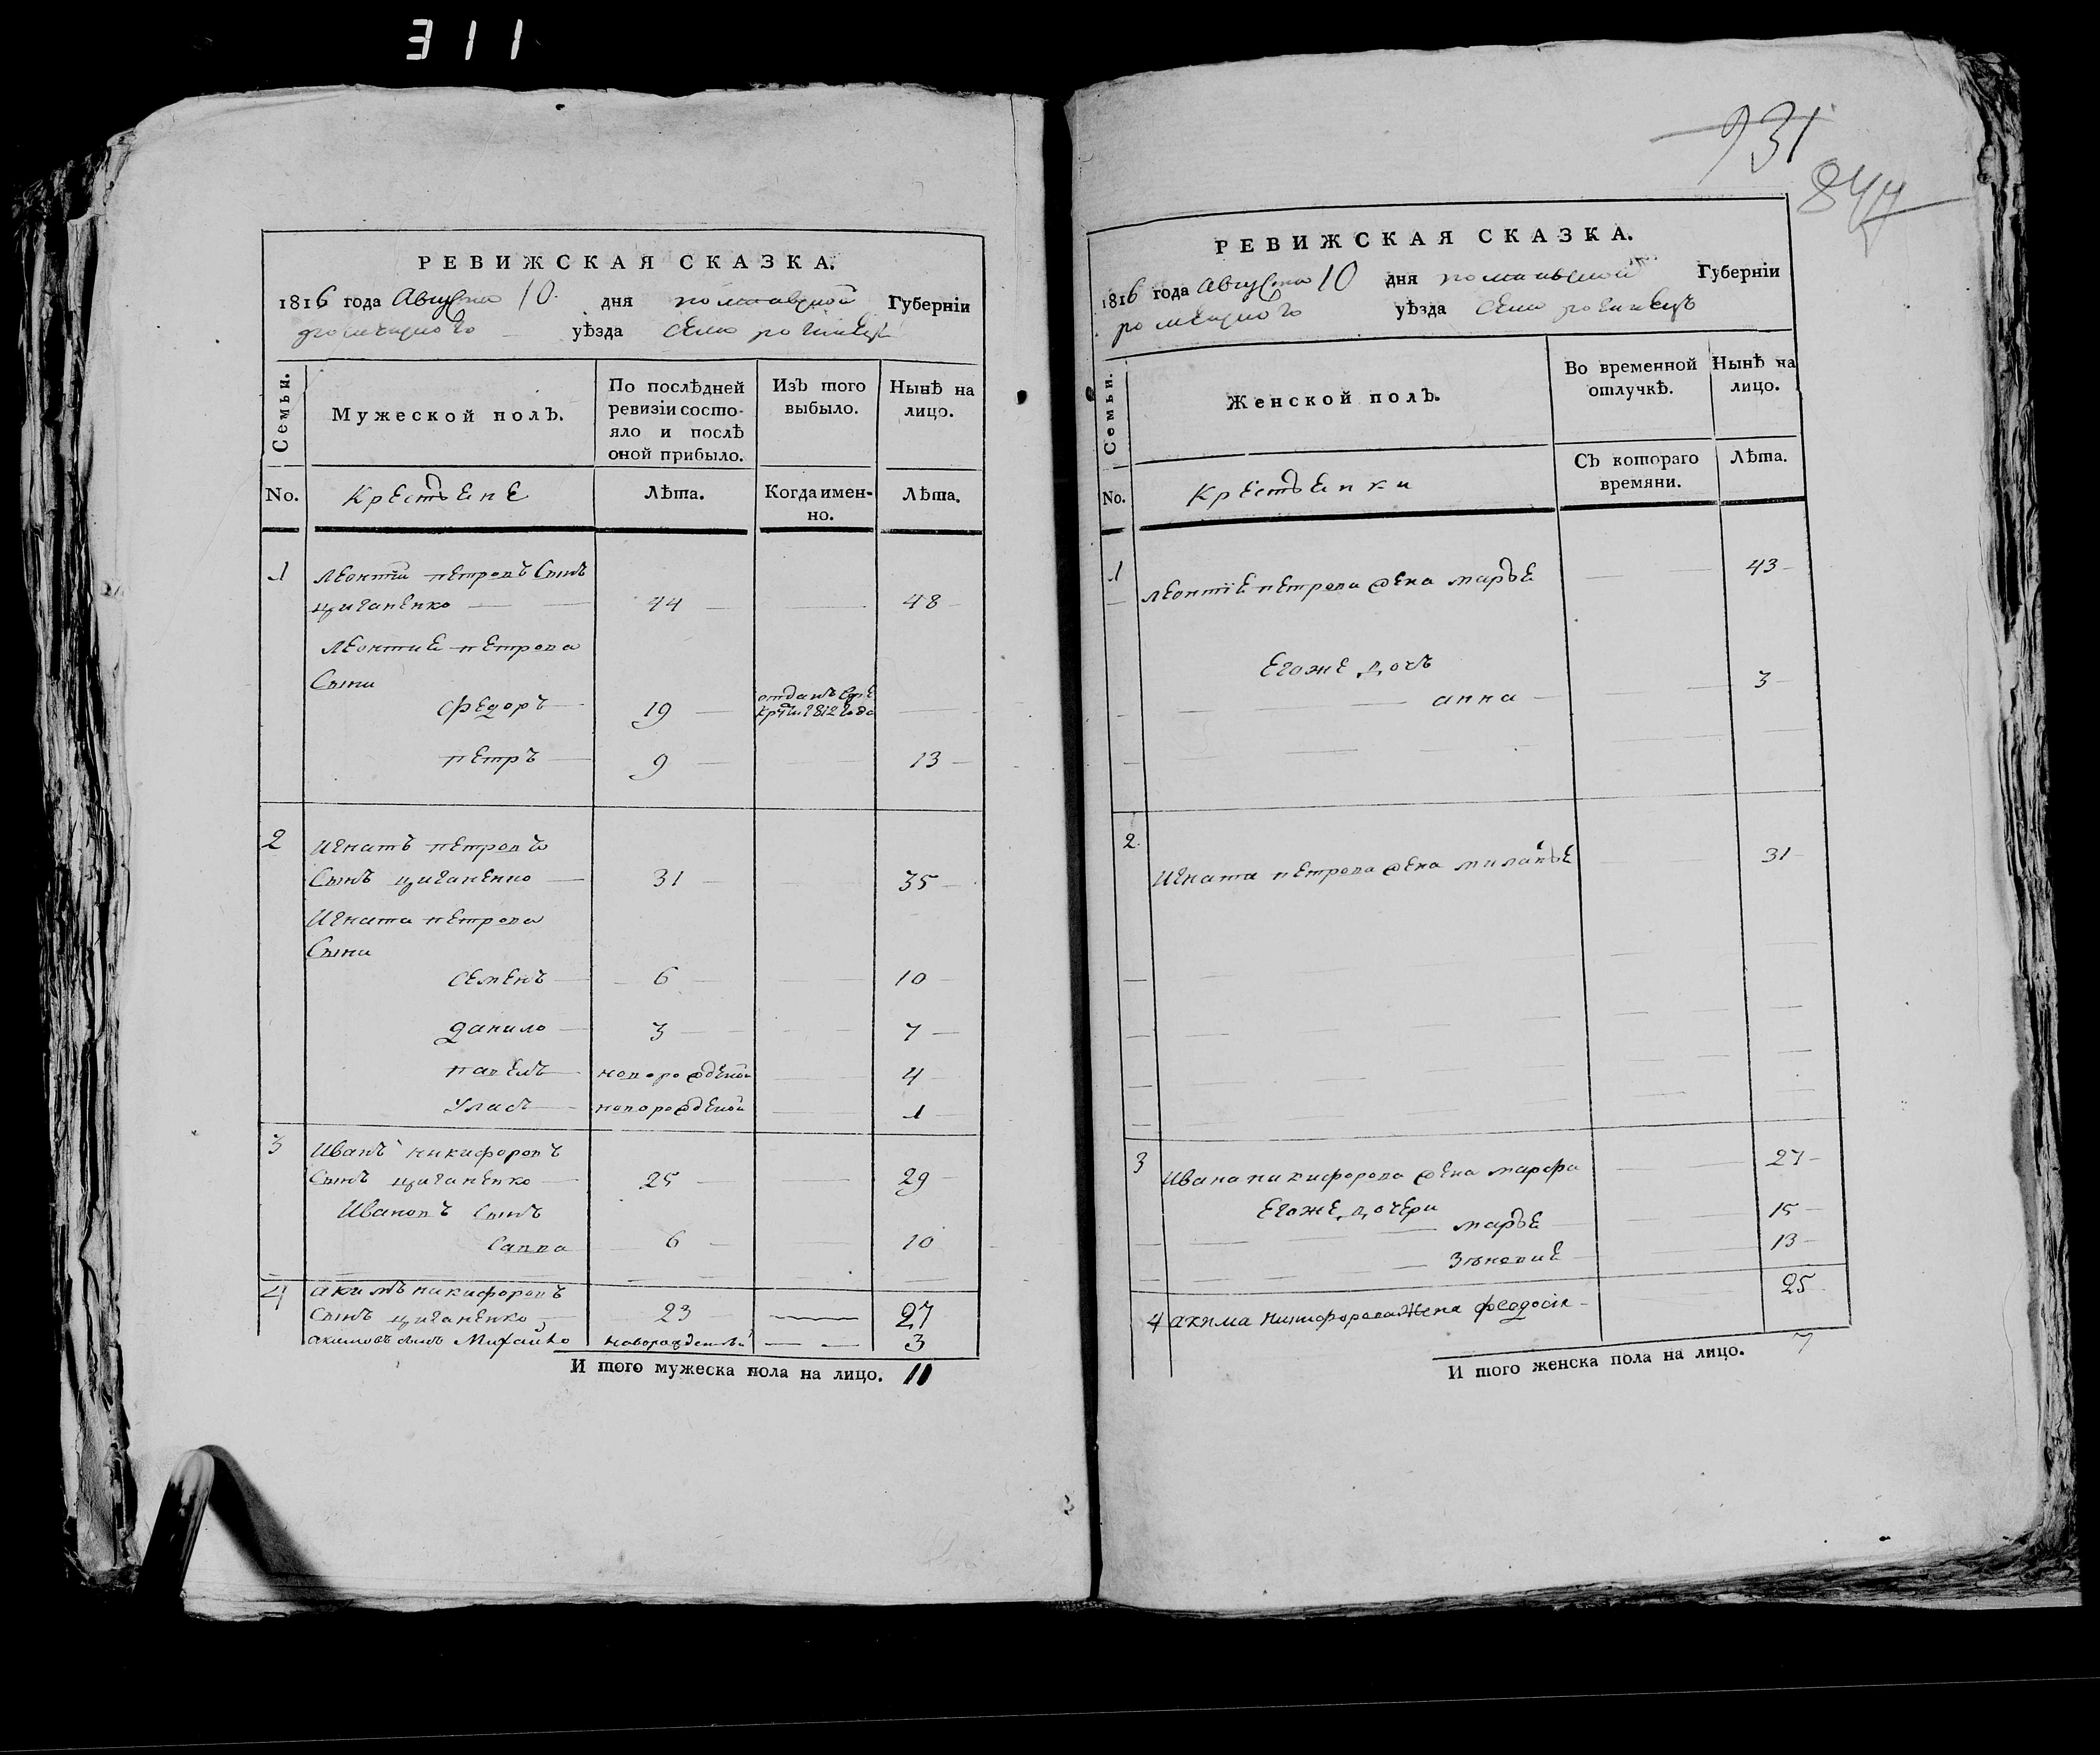 311
931
844
РЕВИЖСКАЯ СКАЗКА.
1816 года Августа 10 дня полтавской Губерніи
роменского уѣзда село рогинец
Семьи.
Мужеской полъ.
По послѣдней ревизіи состо-
яло и послѣ оной прибыло.
Изъ того выбыло.
Нынѣ на лицо.
No.
Крестьепе
Лѣта.
Когда имен-
но.
Лѣта.
1 леонтій петровъ Сынъ
циганенко 44 48
леонтие петрова
Сыни
Федоръ 19 отданъ 1812 года
петръ 9 13
2 Игнатъ петровъ
Сынъ циганенко 31 35
Игната петрова
Сыни
Семенъ 6 10
данило 3 7
павелъ новорожденой 4
Уласъ новорожденой 1
3 Иванъ никифоровъ
Сынъ циганенко 25 29
Ивановъ Сынъ
Савва 6 10
4 акимъ никифоровъ
Сынъ циганенко 23 27
акимовъ сынъ Михайло новорожденный 3
И того мужеска пола на лицо. 11
РЕВИЖСКАЯ СКАЗКА.
1816 года Августа 10 дня полтавской Губерніи
роменского уѣзда село рогинецъ
Семьи.
Женской полъ.
Во временной отлучкѣ.
Нынѣ на лицо.
No.
Крестьенки
Съ котораго времяни.
Лѣта.
1 леонтіе петрова жена марье 43
Егоже дочь
анна 3
2 Игната петрова жена миланье 31
3 Ивана никифорова жена марфа 27
Егоже дочери
марье 15
Зѣновие 13
4 акима никифорова Жена феодосія 25
И того женска пола на лицо. 7